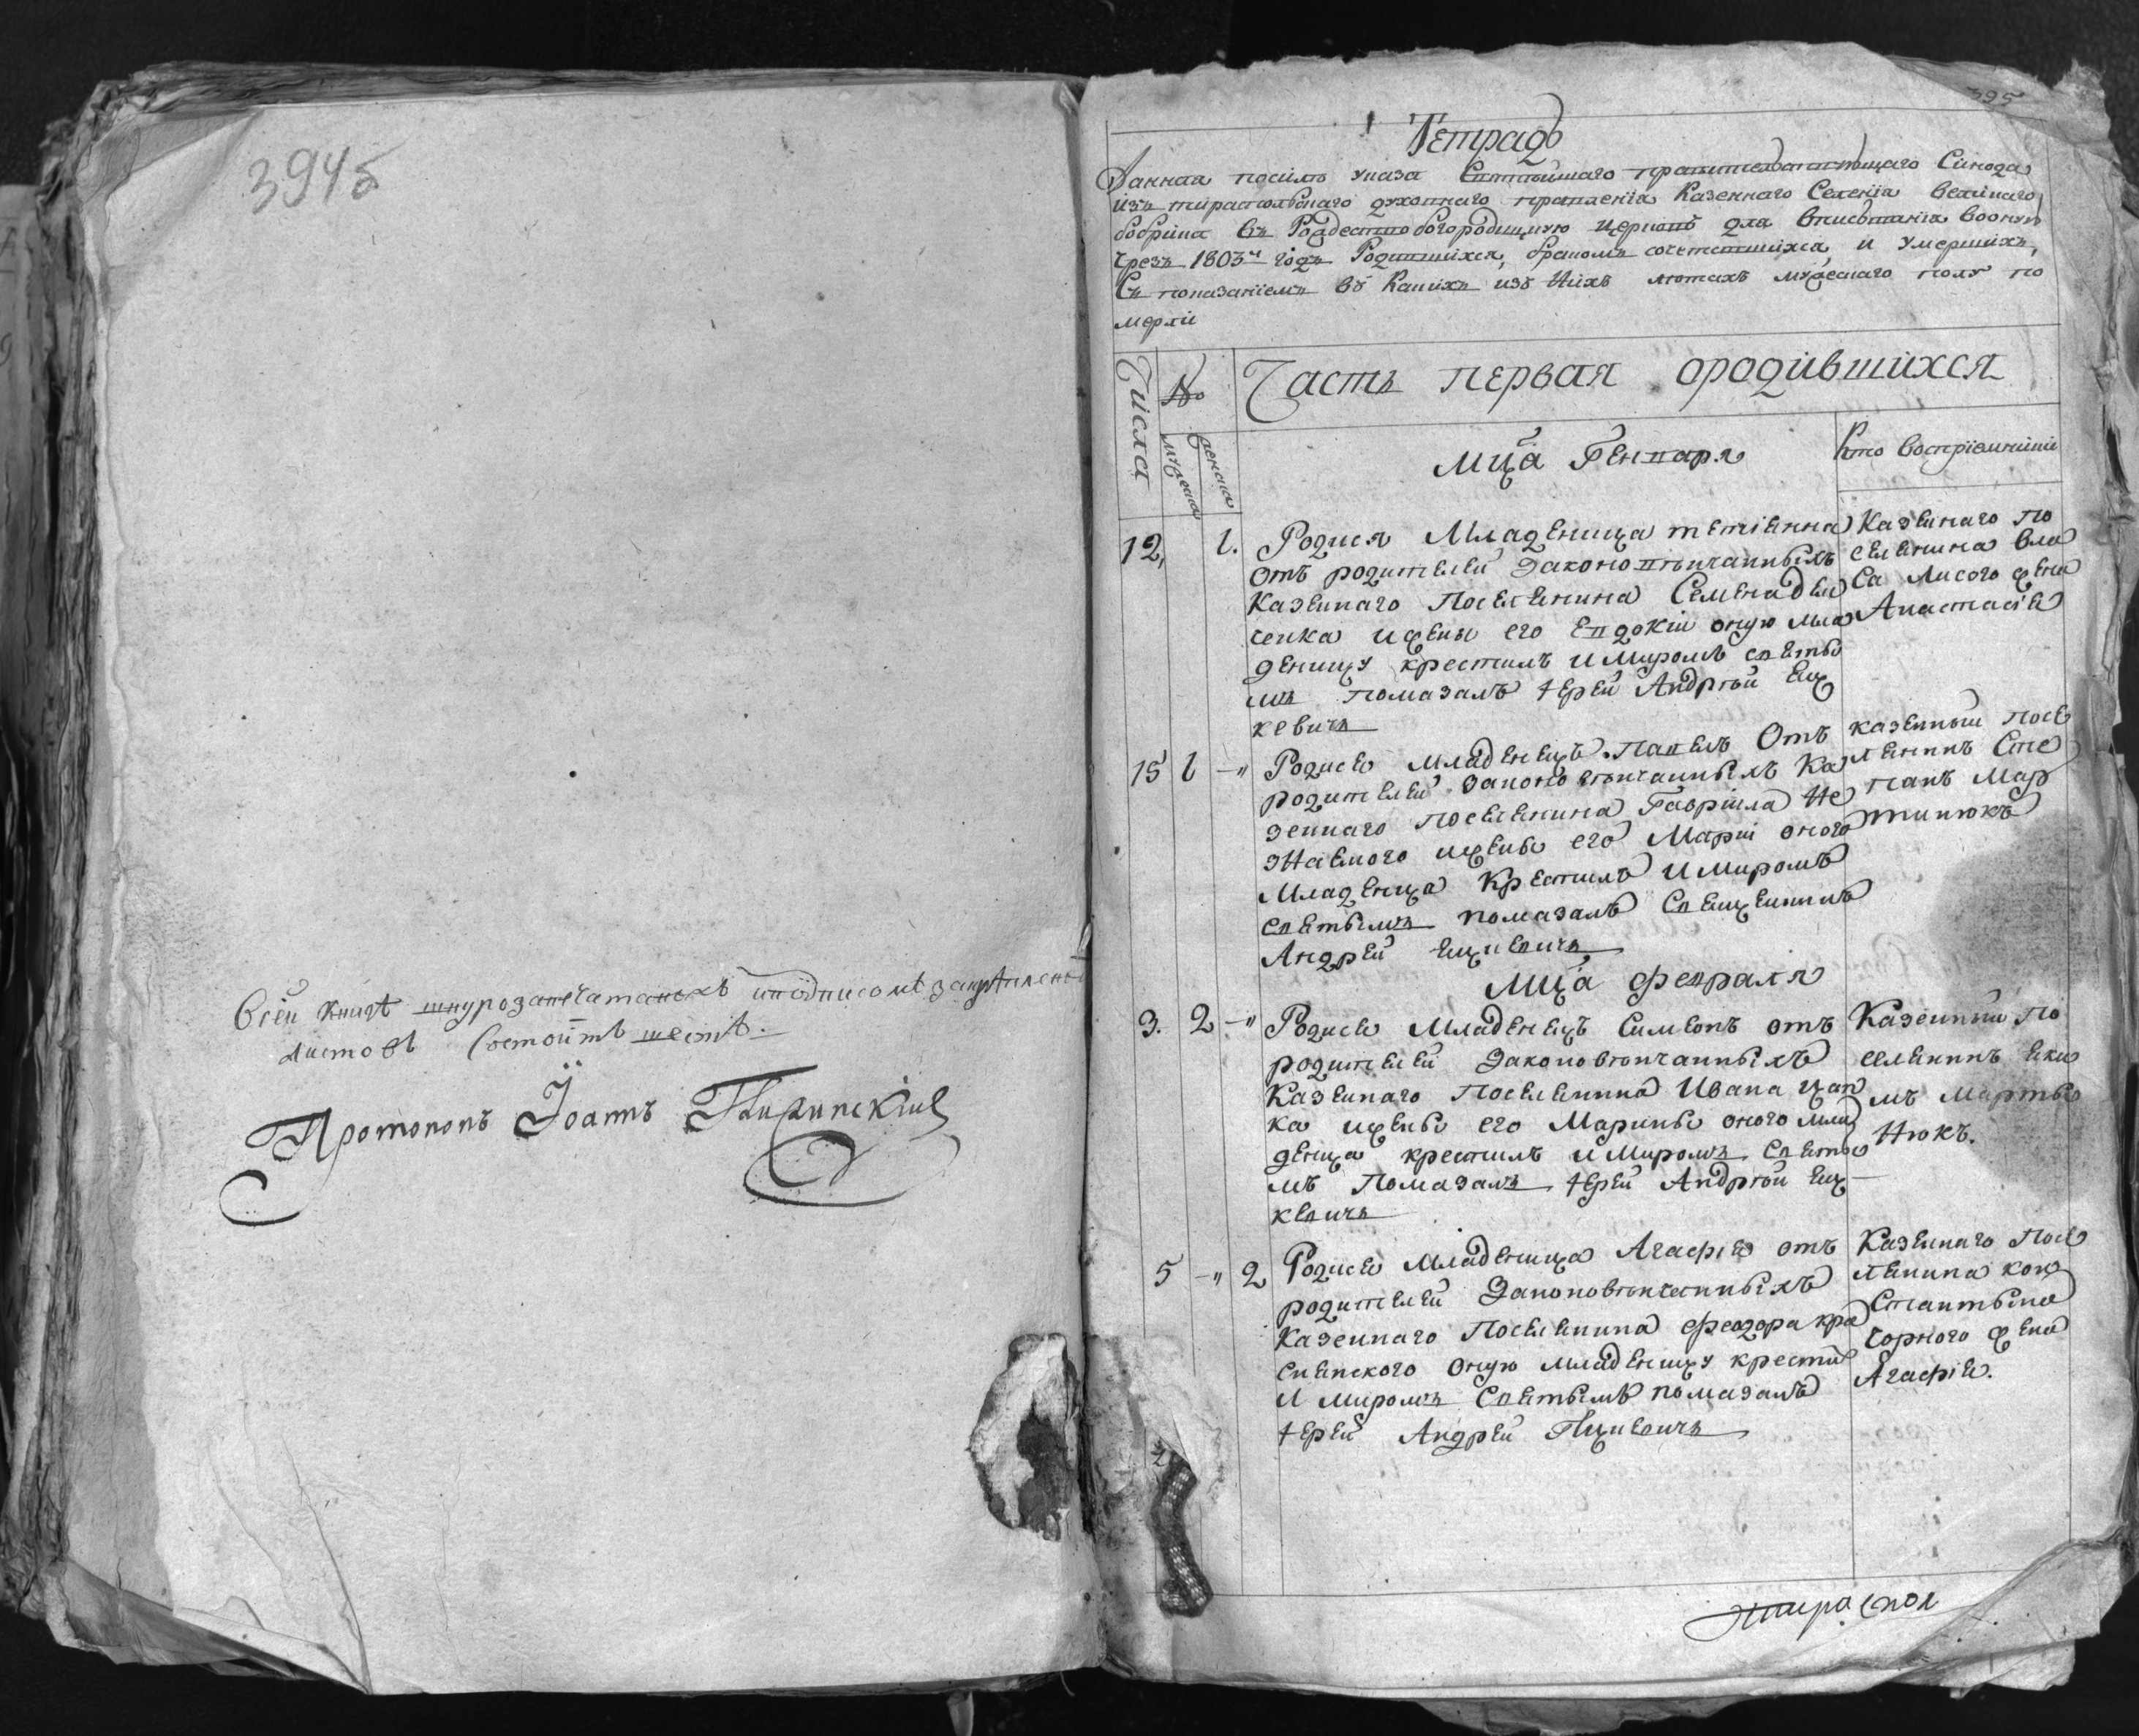 394б
Всей книгѣ шнурозапечатаной
листовъ Состоитъ шесть.
Протопопъ Іоаннъ
395
Тетрадь
Данная посилѣ указа Святѣйшаго правительствующаго Синода
изъ тираспольского духовнаго правленія Казеннаго Селенія великаго
бобрика въ Рождествобогородицкую церковь для вписыванія вооную
чрезъ 1803й годъ Родившихся, бракомъ сочетавшихся, и умершихъ,
Съ показаніемъ въ Какихъ изъ Нихъ лѣтахъ мужескаго полу по
мерли
Числа
№
Часть первая ородившихся
мужеска
женска
Мца Генваря
Кто восприемники
12,
1.
Родися Младеница тетіянна
Отъ родителей Законовѣнчанныхъ
Казеннаго Поселенина Семена
ченка ижены его Евдокіи оную мла
деницу крестилъ иМиромъ святы
мъ помазалъ Іерей Андрѣй Ец
кевичъ
Казеннаго по
селенина Вла
са Лисого жена
Анастасіе
15
1
-"
Родися младенецъ Павелъ Отъ
родителей Законовѣнчанныхъ Ка
зеннаго поселенина Гавріила Не
знаемого ижены его Маріи оного
Младенца Крестилъ иМиромъ
святымъ помазалъ Священникъ
Андрей Ецкевичъ
казенный посе
ленинъ Сте
панъ Мар
тинюкъ
Мца февраля
3.
2
-"
Родися Младенецъ Симеонъ отъ
родителей Законовѣнчанныхъ
Казеннаго Поселенина Ивана Цап
ка ижены его Марины оного мла
денца крестилъ иМиромъ Святы
мъ Помазалъ Іерей Андрѣй Ец
кевичъ
Казенный по
селенинъ Яки
мъ Марты
Нюкъ.
5
-"
2
Родися Младеница Агафія отъ
родителей Законовѣнчанныхъ
Казеннаго Поселенина феодора кра
сневского оную младеницу крести
И миромъ Святымъ помазалъ
Іерей Андрей Ецкевичъ
Казеннаго Посе
ленина кон
стантына
Чорного жена
Агафіе.
2
тираспол